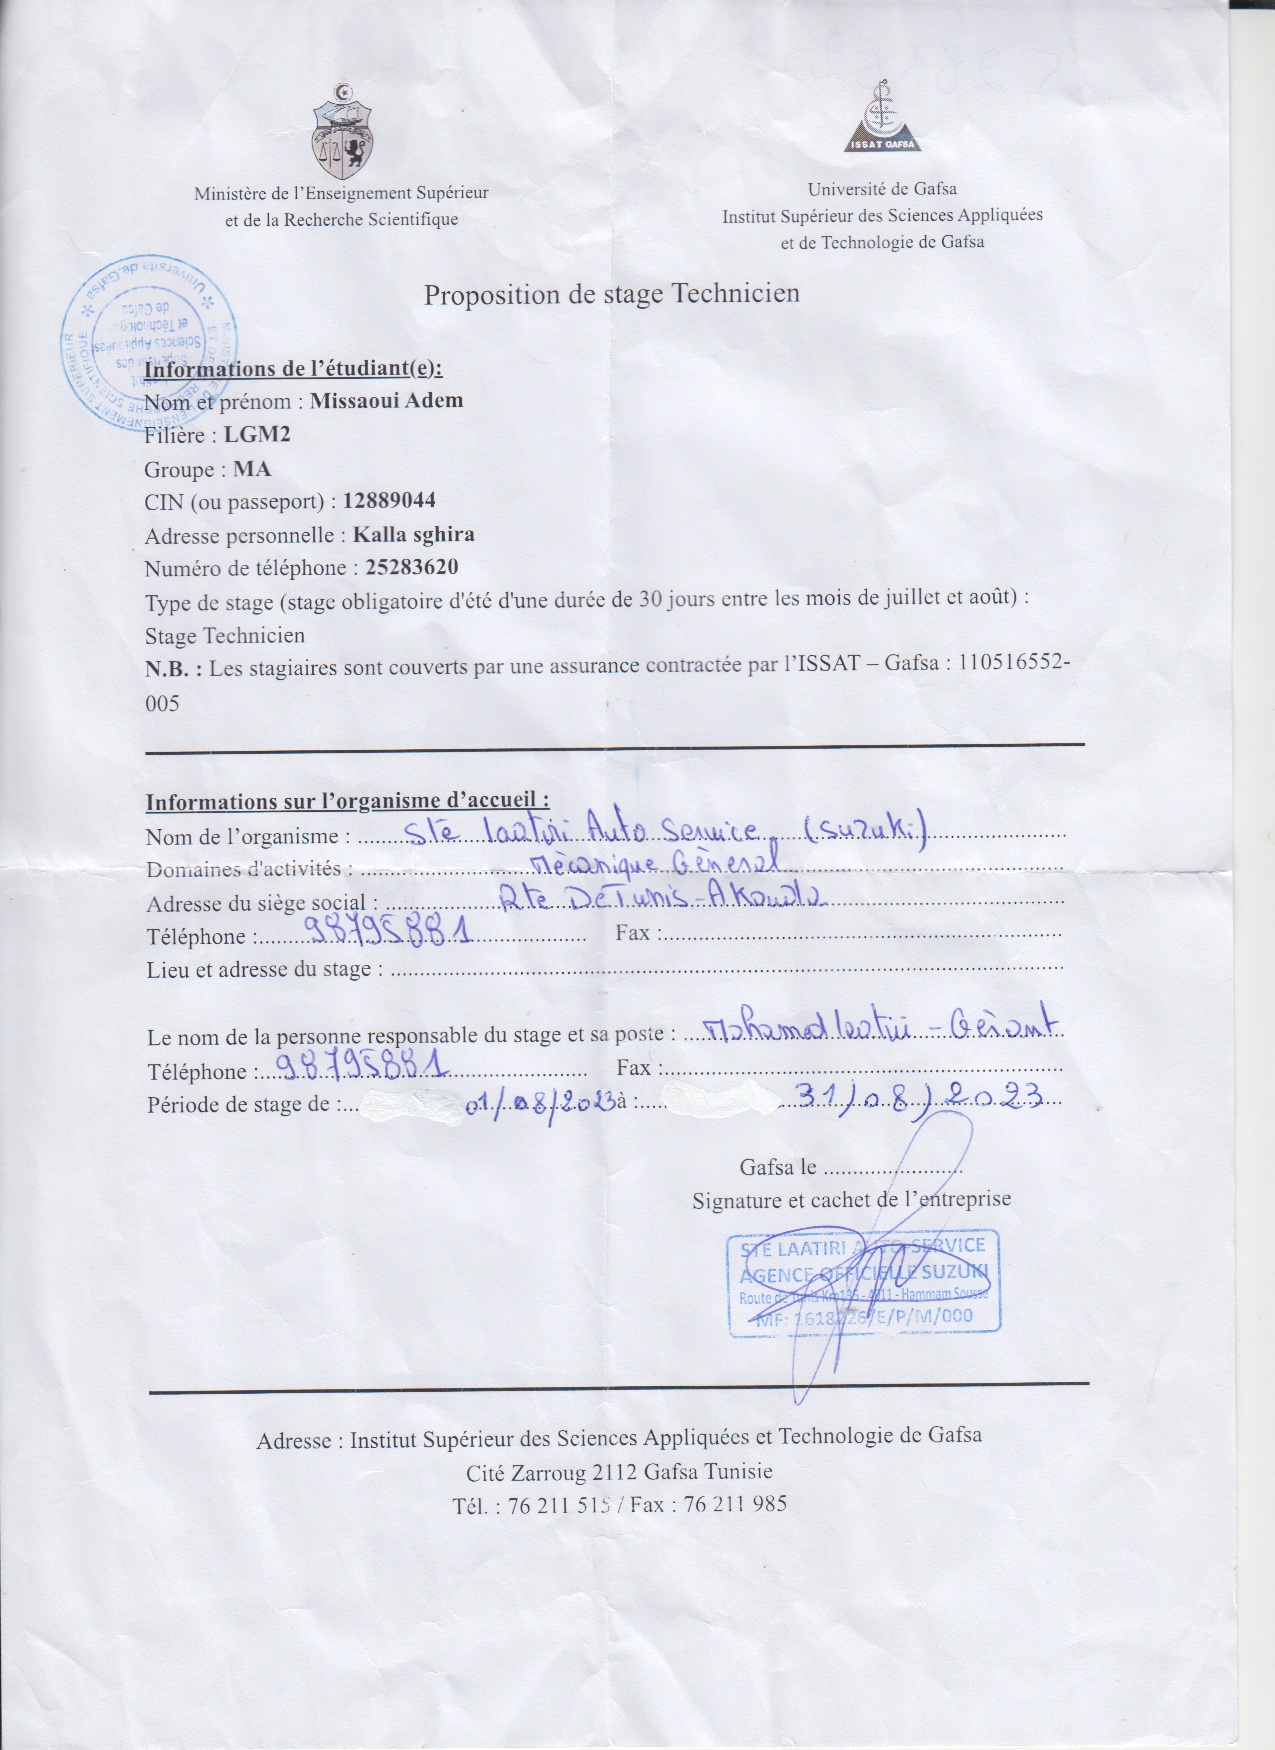 ISSAT GAFSA
Ministère de l'Enseignement Supérieur
et de la Recherche Scientifique
Université de Gafsa
Institut Supérieur des Sciences Appliquées
et de Technologie de Gafsa
Proposition de stage Technicien
Université de Gafsa
MINISTÈRE DE L'ENSEIGNEMENT SUPERIEUR
ET DE LA RECHERCHE SCIENTIFIQUE
Supérieur des
Sciences Appliquées
et Technologie
de Gafsa
Informations de l'étudiant(e):
Nom et prénom : Missaoui Adem
Filière : LGM2
Groupe : MA
CIN (ou passeport) : 12889044
Adresse personnelle : Kalla sghira
Numéro de téléphone : 25283620
Type de stage (stage obligatoire d'été d'une durée de 30 jours entre les mois de juillet et août) :
Stage Technicien
N.B. : Les stagiaires sont couverts par une assurance contractée par l'ISSAT – Gafsa : 110516552-
005
Informations sur l'organisme d'accueil :
Nom de l'organisme : Sté laatiri Auto Service (Suzuki)
Domaines d'activités : Mécanique Géneral
Adresse du siège social : Rte De Tunis - Akouda
Téléphone : 98795881 Fax :
Lieu et adresse du stage :
Le nom de la personne responsable du stage et sa poste : Mohamed laatiri - Gérant
Téléphone : 98795881 Fax :
Période de stage de : 01/08/2023 à : 31/08/2023
Gafsa le
Signature et cachet de l'entreprise
STE LAATIRI AUTO SERVICE
AGENCE OFFICIELLE SUZUKI
Route de Tunis Km135 - 4011 - Hammam Sousse
MF: 1618226/E/P/M/000
Adresse : Institut Supérieur des Sciences Appliquées et Technologie de Gafsa
Cité Zarroug 2112 Gafsa Tunisie
Tél. : 76 211 515 / Fax : 76 211 985